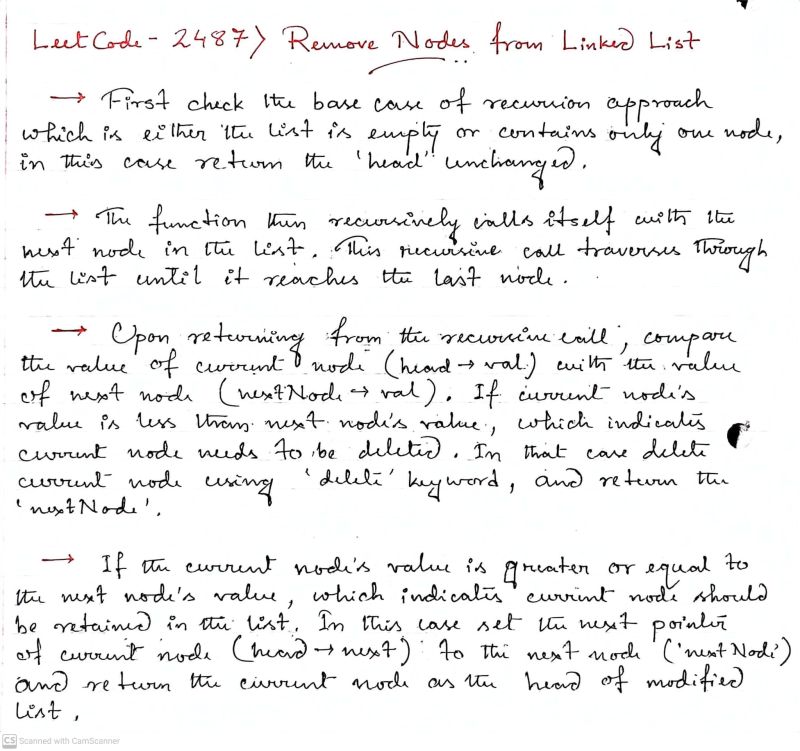 LeetCode - 2487) Remove Nodes from Linked List
→ First check the base case of recursion approach
which is either the list is empty or contains only one node,
in this case return the 'head' unchanged.
→ The function then recursively calls itself with the
next node in the list. This recursive call traverses through
the list until it reaches the last node.
→ Upon returning from the recursive call, compare
the value of current node (head → val) with the value
of next node (nextNode → val). If current node's
value is less than next node's value, which indicates
current node needs to be deleted. In that case delete
current node using 'delete' keyword, and return the
'nextNode'.
→ If the current node's value is greater or equal to
the next node's value, which indicates current node should
be retained in the list. In this case set the next pointer
of current node (head → next) to the next node ('nextNode')
and return the current node as the head of modified
list.
CS Scanned with CamScanner